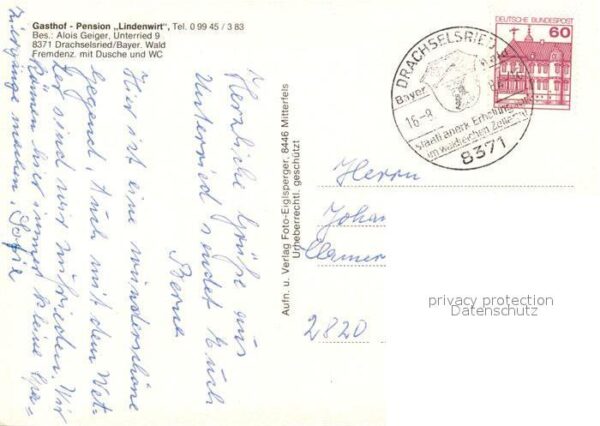 Gasthof - Pension „Lindenwirt", Tel. 0 99 45 / 3 83
Bes.: Alois Geiger, Unterried 9
8371 Drachselsried/Bayer. Wald
Fremdenz. mit Dusche und WC
Herzliche Grüße aus
Unterried sendet Euch
Hier ist eine wunderschöne
Gegend. Auch mit dem Wet-
ter sind wir zufrieden. Wir
können hier immer kleine Spa-
ziergänge machen.
Aufn. u. Verlag Foto-Eiglsperger, 8446 Mitterfels
Urheberrechtl. geschützt
DEUTSCHE BUNDESPOST
60
DRACHSELSRIED
Bayer. Wald
16-8
Staatl. anerk. Erholungsort
im waldreichen Zellertal
8371
Herrn
Joha
2820
privacy protection
Datenschutz